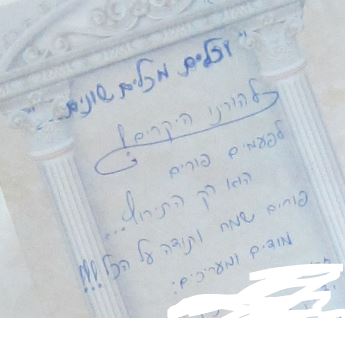 "וכלים מכלים שונים..."
להורנו היקרים!
לפעמים פורים
הוא רק התירוץ...
פורים שמח ותודה על הכל!!!
מודים ומעריכים: